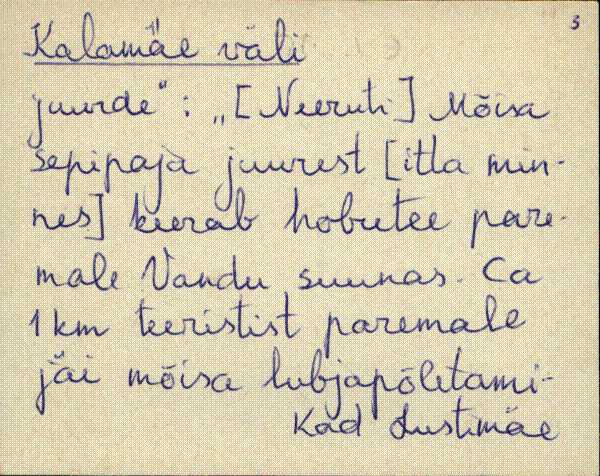 3
Kalamäe väli
juurde" : „[Neeruti] Mõisa
sepipaja juurest [itta min-
nes] keerab hobutee pare-
male Vandu suunas. Ca
1 km teeristist paremale
jäi mõisa lubjapõletami-
Kad Lustimäe